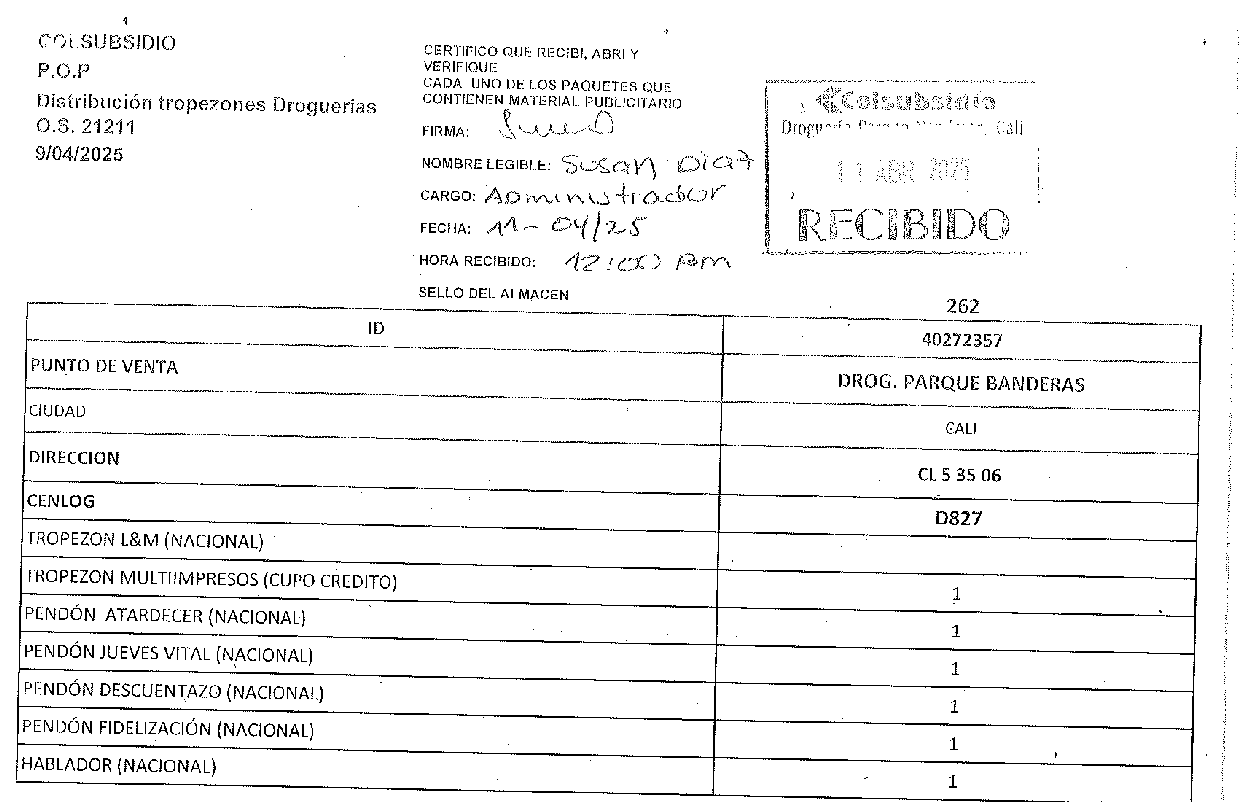 COLSUBSIDIO
P.O.P
Distribución tropezones Droguerías
O.S. 21211
9/04/2025
CERTIFICO QUE RECIBI, ABRI Y
VERIFIQUE
CADA UNO DE LOS PAQUETES QUE
CONTIENEN MATERIAL PUBLICITARIO
FIRMA:
NOMBRE LEGIBLE: Susan Diaz
CARGO: Administrador
FECHA: 11-04/25
HORA RECIBIDO: 12:00 pm
SELLO DEL ALMACEN
Colsubsidio
Droguería Cali
11 ABR 2025
RECIBIDO
262
ID 40272357
PUNTO DE VENTA DROG. PARQUE BANDERAS
CIUDAD CALI
DIRECCION CL 5 35 06
CENLOG D827
TROPEZON L&M (NACIONAL)
TROPEZON MULTIIMPRESOS (CUPO CREDITO) 1
PENDÓN ATARDECER (NACIONAL) 1
PENDÓN JUEVES VITAL (NACIONAL) 1
PENDÓN DESCUENTAZO (NACIONAL) 1
PENDÓN FIDELIZACIÓN (NACIONAL) 1
HABLADOR (NACIONAL) 1